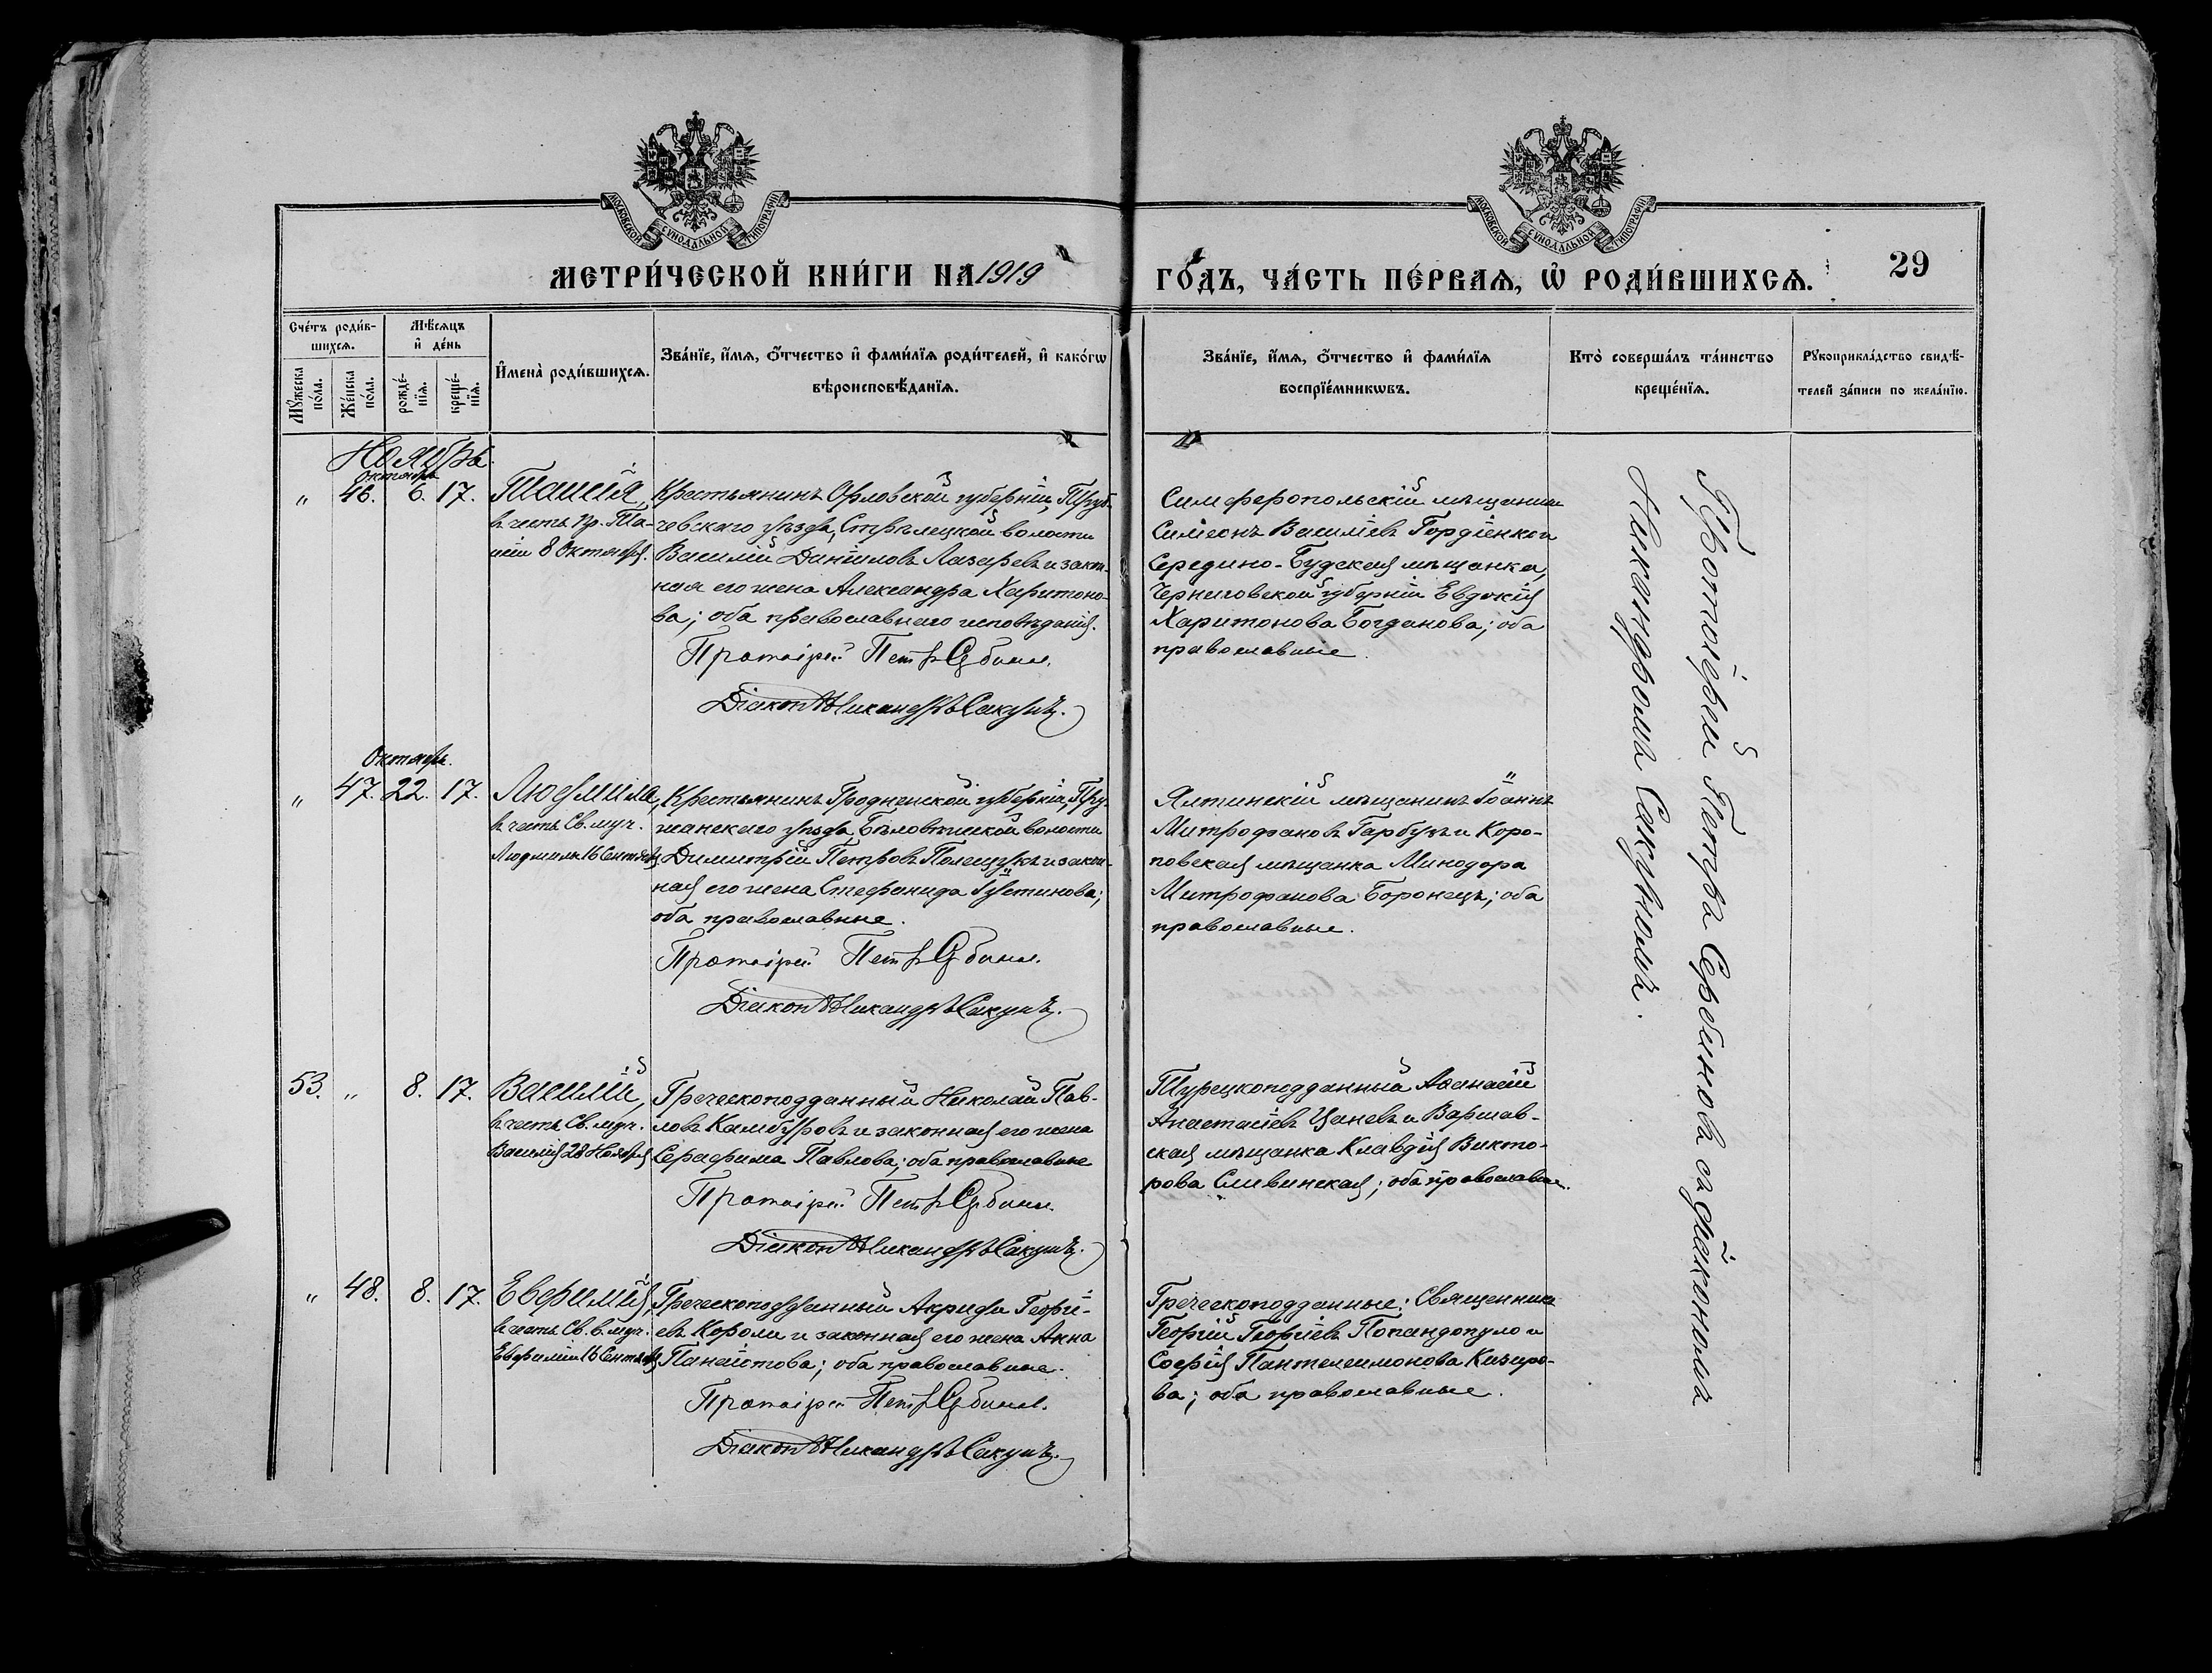 МОСКОВСКОЙ СУНОДАЛЬНОЙ ТИПОГРАФІИ
МОСКОВСКОЙ СУНОДАЛЬНОЙ ТИПОГРАФІИ
МЕТРИ́ЧЕСКОЙ КНИ́ГИ НА 1919
ГО́ДЪ, ЧА́СТЬ ПЕ́РВАѦ, Ѡ҆ РОДИ́ВШИХСѦ.
29
Сче́тъ роди́в-
шихсѧ.
Мꙋ́жеска по́ла.
Же́нска по́ла.
Мѣ́сѧцъ
и҆ де́нь
рожде́-
нїѧ.
креще́-
нїѧ.
И҆мена̀ роди́вшихсѧ.
Зва́нїе, и҆́мѧ, ѻ҆́тчество и҆ фами́лїѧ роди́телей, и҆ како́гѡ
вѣроисповѣ́данїѧ.
Зва́нїе, и҆́мѧ, ѻ҆́тчество и҆ фами́лїѧ
воспрїе́мникѡвъ.
Кто̀ соверша́лъ та́инство
креще́нїѧ.
Рꙋкоприкла́дство свидѣ́-
телей за́писи по жела́нїю.
Ноябрь.
Октября
" 46. 6. 17.
Таисія,
въ честь пр. Та-
исіи 8 Октября.
Крестьянинъ Орловской губерніи, Труб-
чевскаго уѣзда, Стрѣлецкой волости
Василій Даніиловъ Лазаревъ и закон-
ная его жена Александра Харитоно-
ва; оба православнаго исповѣданія.
Протоіерей Петръ Сербиновъ
Діаконъ Никандръ Сакунъ.
Симферопольскій мѣщанинъ
Симеонъ Василіевъ Гордіенко и
Середино-Будская мѣщанка,
Черниговской губерніи Евдокія
Харитонова Богданова; оба
православные.
Октября.
" 47. 22. 17.
Людмила,
въ честь Св. муч.
Людмилы 16 Сентября
Крестьянинъ Гродненской губерніи, Пру-
жанскаго уѣзда, Бѣловѣжской волости
Димитрій Петровъ Полещукъ и закон-
ная его жена Стефанида Іустинова;
оба православные.
Протоіерей Петръ Сербиновъ
Діаконъ Никандръ Сакунъ.
Ялтинскій мѣщанинъ Іоаннъ
Митрофановъ Гарбузъ и Коро-
повская мѣщанка Минодора
Митрофанова Боронецъ; оба
православные.
53. " 8. 17.
Василій,
въ честь Св. муч.
Василія 28 Ноября
Греческоподданный Николай Пав-
ловъ Камбуровъ и законная его жена
Серафима Павлова; оба православные
Протоіерей Петръ Сербиновъ
Діаконъ Никандръ Сакунъ.
Турецкоподданный Аѳанасій
Анастасіевъ Цаневъ и Варшав-
ская мѣщанка Клавдія Викто-
рова Сливинская; оба православные.
" 48. 8. 17.
Евфимія,
въ честь Св. в. муч.
Евфиміи 16 Сентября
Греческоподданный Акрида Георгі-
евъ Короли и законная его жена Анна
Панаіотова; оба православные.
Протоіерей Петръ Сербиновъ
Діаконъ Никандръ Сакунъ.
Греческоподданные: Священникъ
Георгій Георгіевъ Попандопуло и
Софія Пантелеимонова Кизиро-
ва; оба православные.
Протоіерей Петръ Сербиновъ съ діакономъ
Никандромъ Сакуномъ.